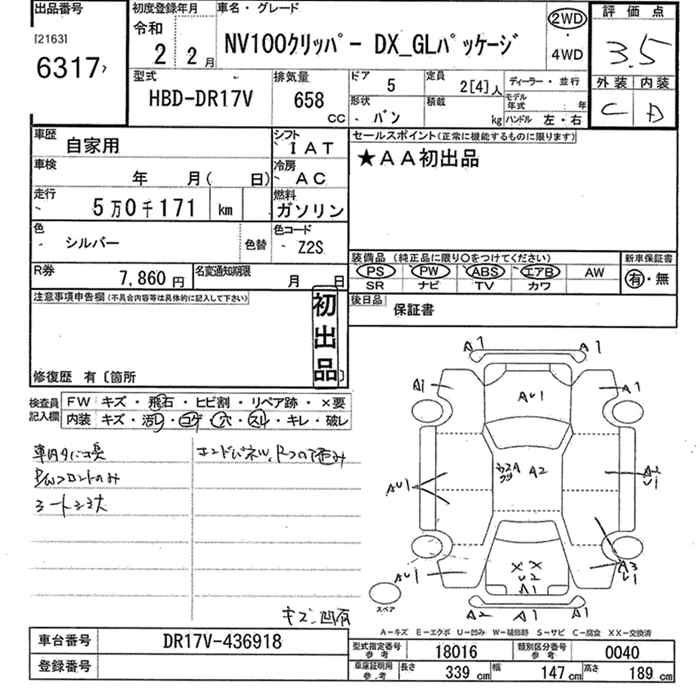 出品番号
[2163]
6317
初度登録年月
令和
2 2月
車名・グレード
NV100クリッパー DX_GLパッケージ
2WD
・
4WD
評価点
3.5
外装 内装
C D
型式
HBD-DR17V
排気量
658 CC
ドア 5
定員 2[4]人
ディーラー・並行
形状 バン
積載 kg
モデル年式 : 年
ハンドル 左・右
車歴 自家用
シフト IAT
車検 年 月( 日)
冷房 AC
走行 5万0千171 km
燃料 ガソリン
色 シルバー 色替
色コード Z2S
R券 7,860円
名変通知期限 月 日
セールスポイント(正常に機能するものに限ります)
★AA初出品
装備品 (純正品に限り○をつけてください)
新車保証書
PS PW ABS エアB AW
SR ナビ TV カワ
有・無
後日品
保証書
注意事項申告欄(不具合内容等は具体的に記入して下さい)
初出品
修復歴 有〔箇所 〕
検査員記入欄
FW キズ・飛石・ヒビ割・リペア跡・×要
内装 キズ・汚レ・コゲ・穴・スレ・キレ・破レ
車内タバコ臭
PWフロントのみ
エンドパネル、
キズ、凹有
A1 A1
A1 AU1 A1
A2
AU1
A2
U1
AU1
XX
U2
A1
A3
U1
A2 A1 A1
スペア
A-キズ E-エクボ U-凹み W-補修跡 S-サビ C-腐食 XX-交換済
車台番号 DR17V-436918
登録番号
型式指定番号 参考 18016
類別区分番号 参考 0040
車庫証明用 参考 長さ 339 cm 幅 147 cm 高さ 189 cm